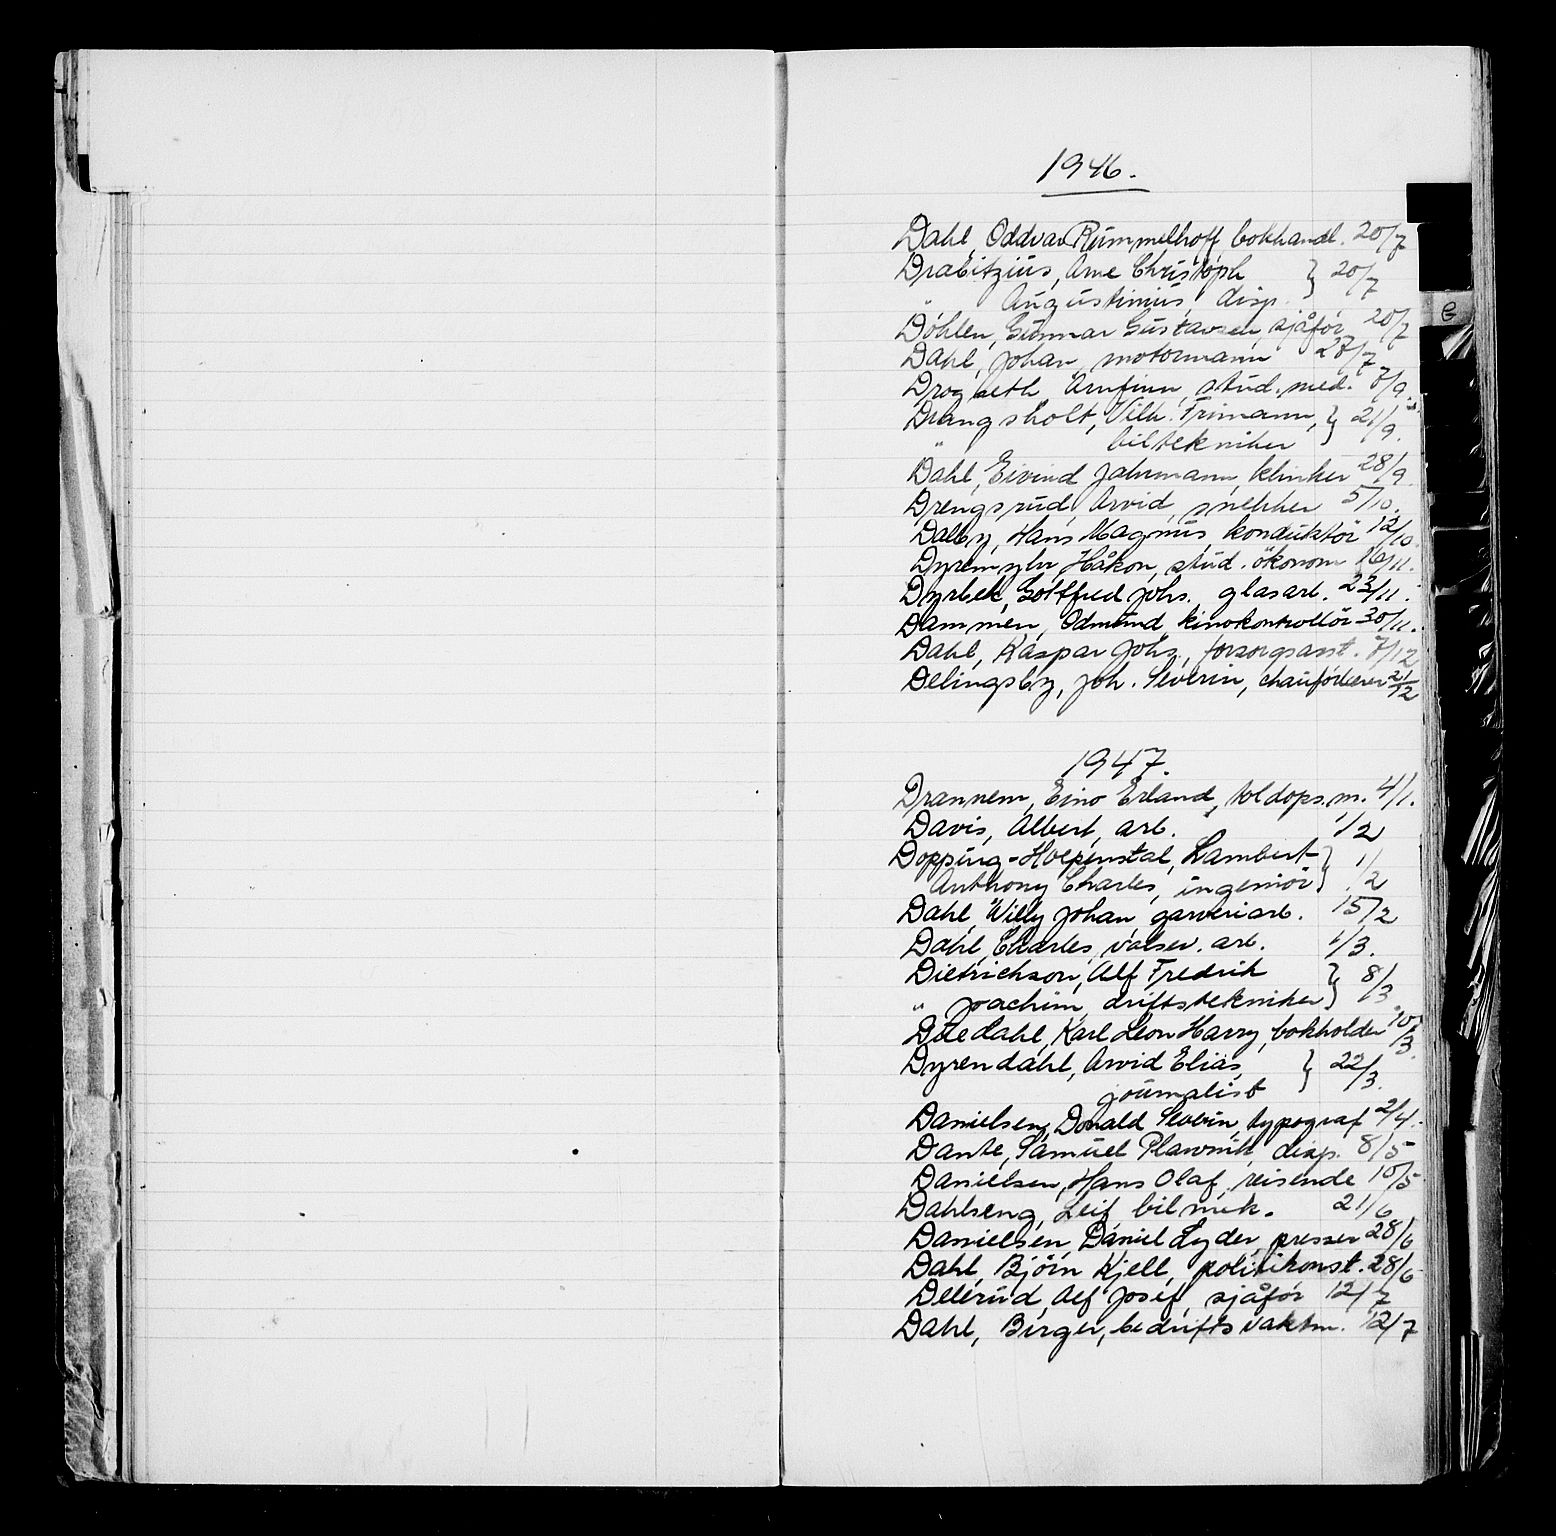 1946.
Dahl, Oddvar Rummelhoff bokhandl. 20/7
Drabitzius, Arne Christoph } 20/7
" Augustinius, disp.
Döhlen, Gunnar Gustavsen, sjåför 20/7
Dahl, Johan, motormann 27/7
Drogseth Arnfinn, stud. med. 7/9.
Drangsholt, Vilh. Frimann, } 21/9.
" biltekniker
Dahl, Eivind Jahrmann, klinker 28/9
Drengsrud, Arvid, snekker 5/10.
Dalby, Hans Magnus, konduktör 12/10.
Dyremyhr Håkon, stud. ökonom 16/11.
Dyrbek, Gottfred Johs. glasarb. 23/11.
Dammen, Odmund, kinokontrollör 30/11.
Dahl, Kaspar Johs., forsorgsasst. 7/12
Delingsby, Joh. Severin, chauförlærer 21/12
1947.
Drannem, Eino Erland, toldops.m. 4/1.
Davis, Albert, arb. 1/2
Dopping-Hepenstal, Lambert } 1/2
Anthony Charles, ingeniör
Dahl, Willy Johan, garveriarb. 15/2
Dahl, Charles, valsev. arb. 1/3.
Dietrichson, Alf Fredrik } 8/3
" Joachim, driftstekniker
Duedahl, Karl Leon Harry, bokholder /3.
Dyrendahl, Arvid Elias, } 22/3.
journalist
Danielsen, Donald Severin, typograf 2/4.
Dante, Samuel Plawnik, disp. 8/5
Danielsen, Hans Olaf, reisende 10/5
Dahlseng, Leif, bilmek. 21/6
Danielsen, Daniel Lyder, presser 28/6
Dahl, Björn Kjell, politikonst. 28/6
Dellerud, Alf Josef, sjåför 12/7
Dahl, Birger, bedriftsvaktm. 12/7